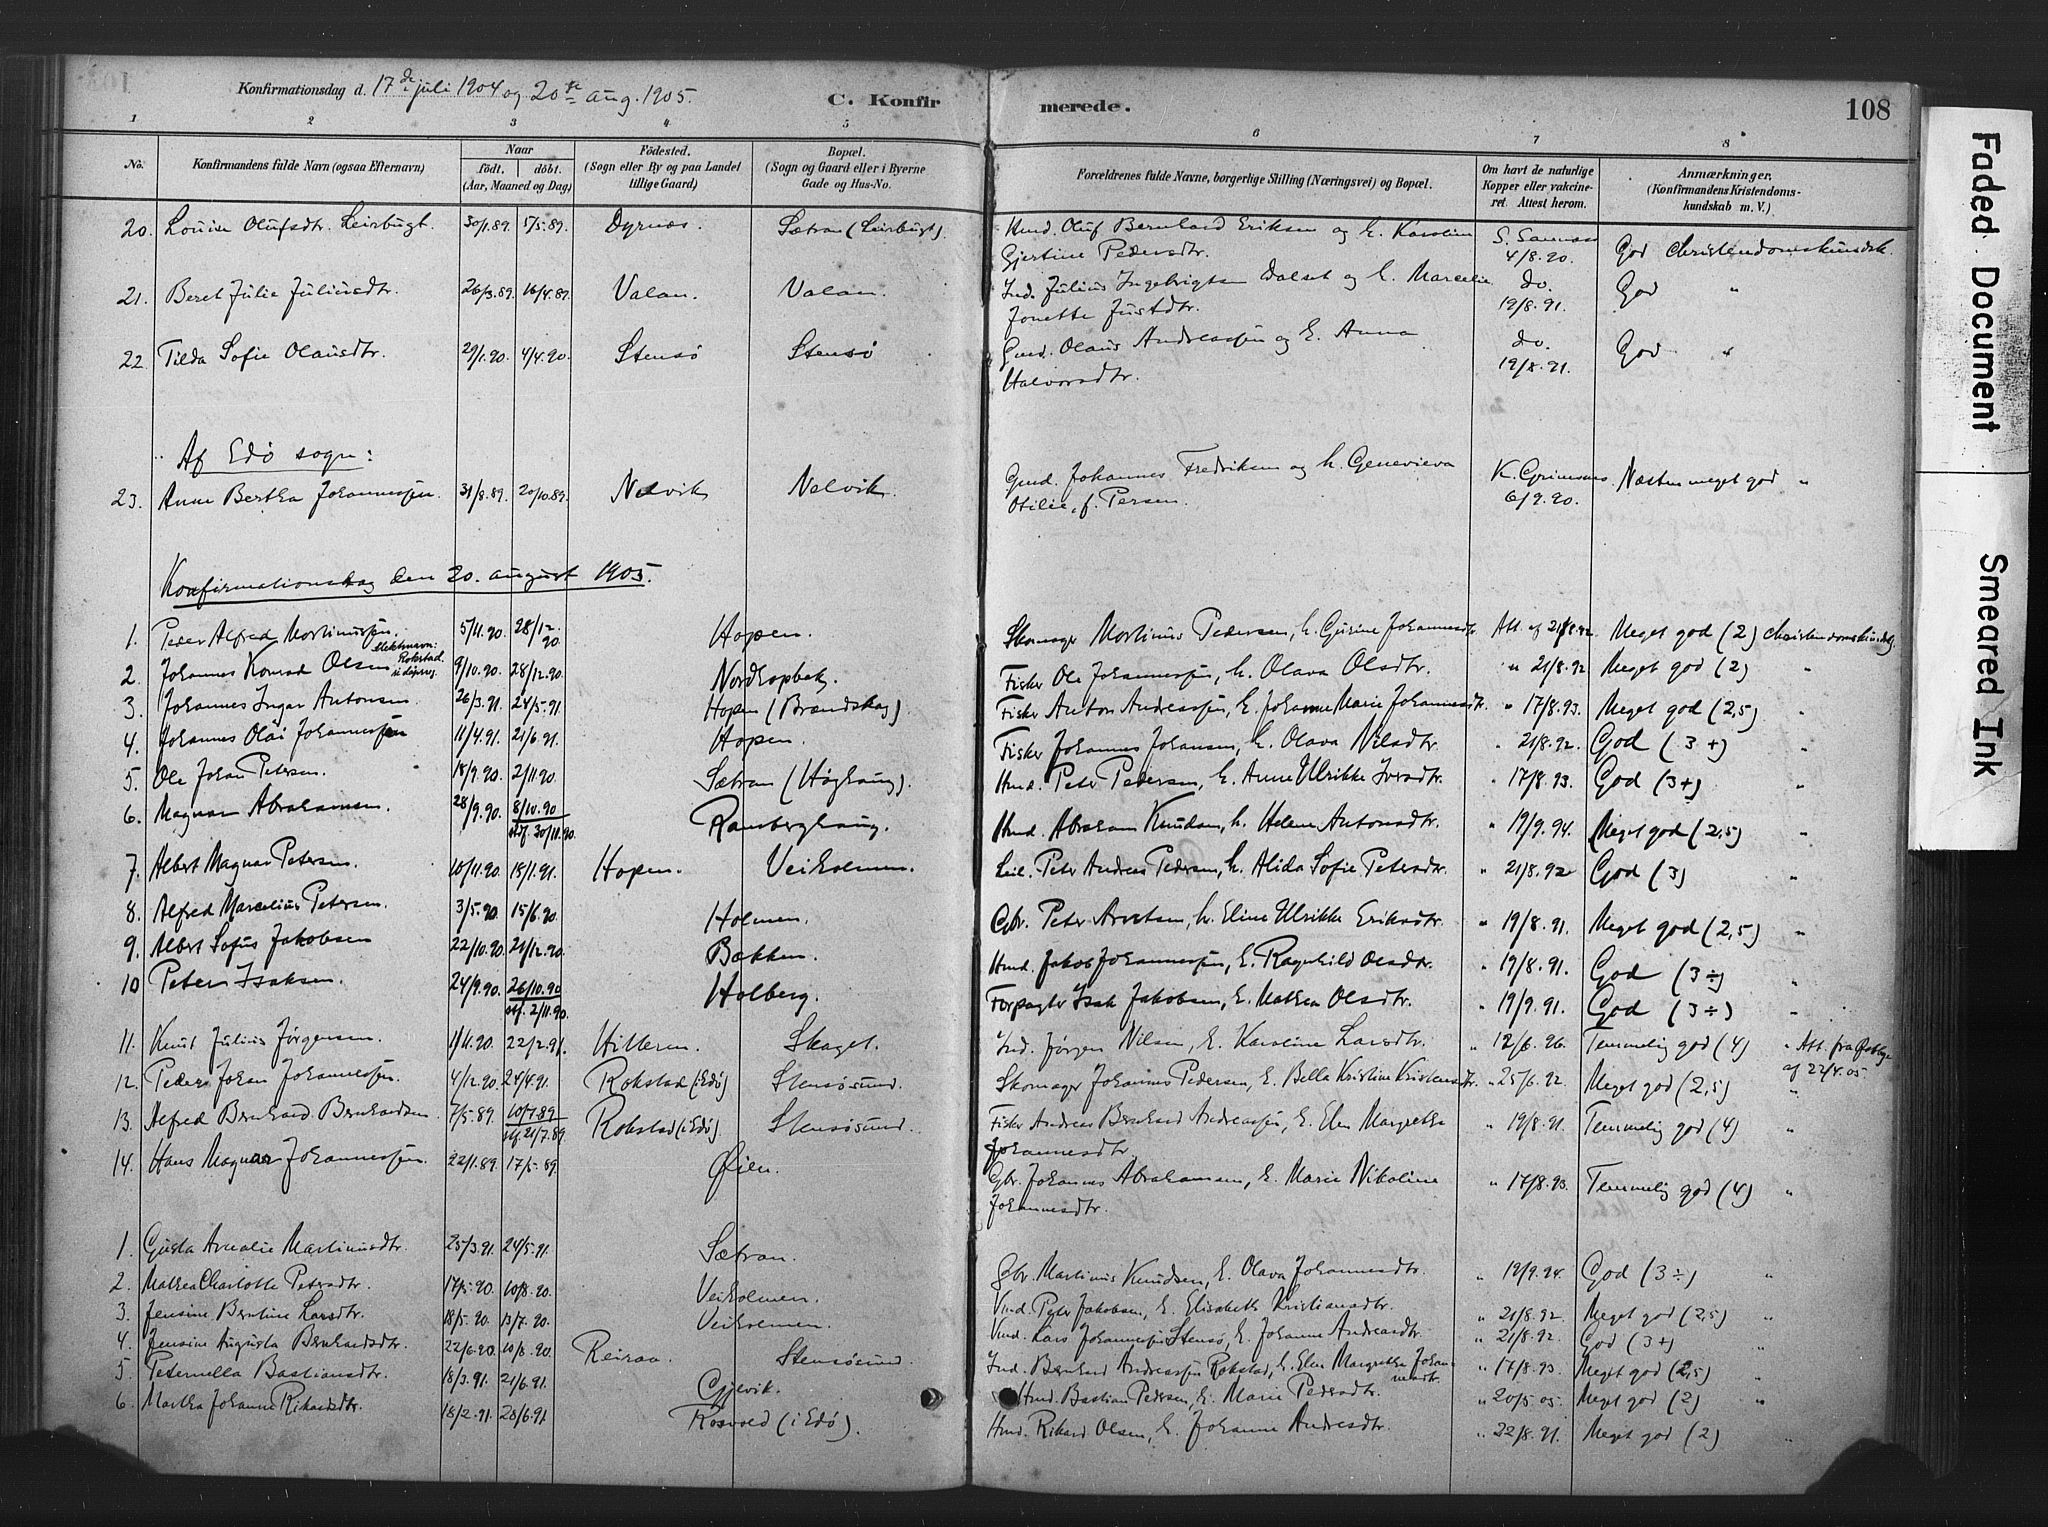 Konfirmationsdag d. 17de juli 1904 og 20de aug. 1905.
C. Konfirmerede.
108
1 2 3 4 5 6 7 8
No. Konfirmandens fulde Navn (ogsaa Efternavn) Naar født. døbt. (Aar, Maaned og Dag) Fødested. (Sogn eller By og paa Landet tillige Gaard) Bopæl. (Sogn og Gaard eller i Byerne Gade og Hus-No. Forældrenes fulde Navne, borgerlige Stilling (Næringsvei) og Bopæl. Om havt de naturlige Kopper eller vakcineret. Attest herom. Anmærkninger. (Konfirmandens Kristendomskundskab m. V.)
20. Louise Olufsdtr. Leirbugt. 30/1.89. 5/5.89. Dyrnæs. Sætran (Leirbugt). Hmd. Oluf Bernhard Eriksen og h. Karoline
Gjertine Pedersdtr. 4/8.90. God Christendomskundsk.
21. Beret Julie Juliusdtr. 26/3.89. 16/4.89. Valan. Valan. Ind. Julius Ingebrigtsen Dalset og h. Marcelie
Jonette Justdtr. do. 19/8.91. God "
22. Tilda Sofie Olausdtr. 29/1.90. 4/4.90. Stensø Stensø Gmd. Olaus Andreassen og h. Anna
Halvorsdtr. do. 19/8.91. God "
Af Edø sogn:
23. Anne Bertha Johannessen. 31/8.89. 20/10.89. Nelvik Nelvik. Gmd. Johannes Fredriksen og h. Genevieva
Otilie, f. Persen. 6/9.90. Næsten meget god "
Konfirmationsdag den 20. august 1905.
1. Peder Alfred Martinussen. 5/11.90. 28/12.90 Hopen. Skomager Martinus Pedersen, h. Gurine Johannesdtr. Att. af 21/8.92. Meget god (2) Christendomskundsk.
2. Johannes Konrad Olsen 9/10.90. 28/12.90. Nordhopbak. Fisker Ole Johannessen, h. Olava Olsdtr. " 21/8.92 Meget god (2) "
3. Johannes Ingar Antonsen. 26/3.91. 24/5.91 Hopen (Brandskag). Fisker Anton Andreassen, h. Johanne Marie Johannesdtr. " 17/8.93. Meget god (2,5) "
4. Johannes Olai Johannessen 11/4.91. 21/6.91. Hopen. Fisker Johannes Johansen, h. Olava Nilsdtr. " 21/8.92. God (3+) "
5. Ole Johan Petersen. 18/9.90. 2/11.90. Sætran (Høghaug). Hmd. Peter Pedersen, h. Anne Ulrikke Iversdtr. " 17/8.93. God (3+) "
6. Magnar Abrahamsen. 28/9.90. 8/10.90 stf. 30/11.90. Ramberghaug. Hmd. Abraham Knudsen, h. Helene Antonsdtr. " 19/9.94. Meget god (2,5) "
7. Albert Magnar Petersen. 10/11.90. 18/1.91. Hopen. Veiholmen. Leil. Peter Andreas Pedersen, h. Alida Sofie Petersdtr. " 21/8.92 God (3) "
8. Alfred Marcelius Petersen. 3/5.90. 15/6.90. Holmen. Gbr. Peter Arntsen, h. Eline Ulrikke Eriksdtr. " 19/8.91. Meget god (2,5) "
9. Albert Sofus Jakobsen 22/10.90. 21/12.90. Bækken. Hmd. Jakob Johannessen, h. Ragnhild Olsdtr. " 19/8.91. God (3÷) "
10 Peter Isaksen. 24/9.90. 26/10.90 stf. 2/11.90. Holberg. Forpagter Isak Jakobsen, h. Mathea Olsdtr. " 19/9.91. God (3÷) "
11. Knut Julius Jørgensen. 1/11.90. 22/2.91. Hitteren. Skaget. Ind. Jørgen Nilsen, h. Karoline Larsdtr. " 12/6.96. Temmelig god (4) " Att. fra
12. Peder Johan Johannessen. 4/12.90. 24/4.91. Rokstad (i Edø) Stensøsund. Skomager Johannes Pedersen, h. Bella Kristine Kristensdtr. " 25/6.92. Meget god (2,5) " af 22/4.05
13. Alfred Bernhard Bernhardsen 7/5.89. 10/7.89 stf. 21/7.89 Rokstad (i Edø). Stensøsund. Fisker Andreas Bernhard Andreassen, h. Elen Margrethe
Johannesdtr. " 19/8.91. Temmelig god (4) "
14. Hans Magnar Johannessen. 22/1.89. 17/5.89. Øien. Gbr. Johannes Abrahamsen, h. Marie Nikoline
Johannesdtr. " 17/8.93. Temmelig god (4) "
1. Gusta Amalie Martinusdtr. 25/3.91. 24/5.91. Sætran. Gbr. Martinus Knudsen, h. Olava Johannesdtr. " 19/9.94. God (3÷) "
2. Mathea Charlotte Petersdtr. 17/5.90. 10/8.90. Veiholmen. Ind. Peter Jakobsen, h. Elisabeth Kristiansdtr. " 21/8.92. Meget god (2,5) "
3. Jensine Berntine Larsdtr. 18/5.90. 13/7.90. Veiholmen. Ind. Lars Johannessen Stensø, h. Johanne Andreasdtr. " 21/8.92. God (3+)
4. Jensine Augusta Bernhardsdtr. 22/6.90. 10/8.90. Reiraa. Stensøsund. Ind. Bernhard Andreassen Rokstad, h. Elen Margrethe Johannesdtr. " 17/8.93. Meget god (2,5) "
5. Peternella Bastiansdtr. 18/3.91. 21/6.91. Gjevik. Hmd. Bastian Pedersen, h. Marie Pedersdtr. " 20/5 05. Meget god (2) "
6. Martha Johanne Rikardsdtr. 18/2.91. 28/6.91 Rosvold (i Edø). Hmd. Rikard Olsen, h. Johanne Andreasdtr. " 22/8.91. Meget god (2) "
Faded Document
Smeared Ink